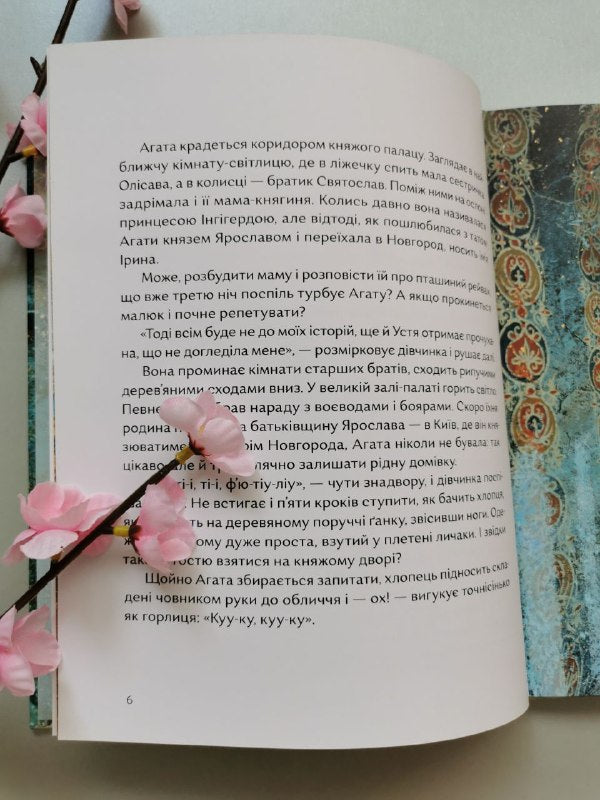 Агата крадеться коридором княжого палацу. Заглядає в най-
ближчу кімнату-світлицю, де в ліжечку спить мала сестричка
Олісава, а в колисці — братик Святослав. Поміж ними на ослоні
задрімала і її мама-княгиня. Колись давно вона називалася
принцесою Інгігердою, але відтоді, як пошлюбилася з татом
Агати князем Ярославом і переїхала в Новгород, носить ім'я
Ірина.
Може, розбудити маму і розповісти їй про пташиний рейвах,
що вже третю ніч поспіль турбує Агату? А якщо прокинеться
малюк і почне репетувати?
«Тоді всім буде не до моїх історій, ще й Устя отримає прочуха-
на, що не догледіла мене», — розмірковує дівчинка і рушає далі.
Вона проминає кімнати старших братів, сходить рипучими
дерев'яними сходами вниз. У великій залі-палаті горить світло.
Певно брав нараду з воєводами і боярами. Скоро їхня
родина на батьківщину Ярослава — в Київ, де він кня-
зюватиме рім Новгорода, Агата ніколи не бувала: так
цікаво, але й лячно залишати рідну домівку.
ті-і, ті-і, ф'ю-тіу-ліу», — чути знадвору, і дівчинка поспі-
Не встигає і п'яти кроків ступити, як бачить хлопця,
як ть на деревяному поруччі ґанку, звісивши ноги. Оде-
ому дуже проста, взутий у плетені личаки. І звідки
так остю взятися на княжому дворі?
Щойно Агата збирається запитати, хлопець підносить скла-
дені човником руки до обличчя і — ох! — вигукує точнісінько
як горлиця: «Куу-ку, куу-ку».
6